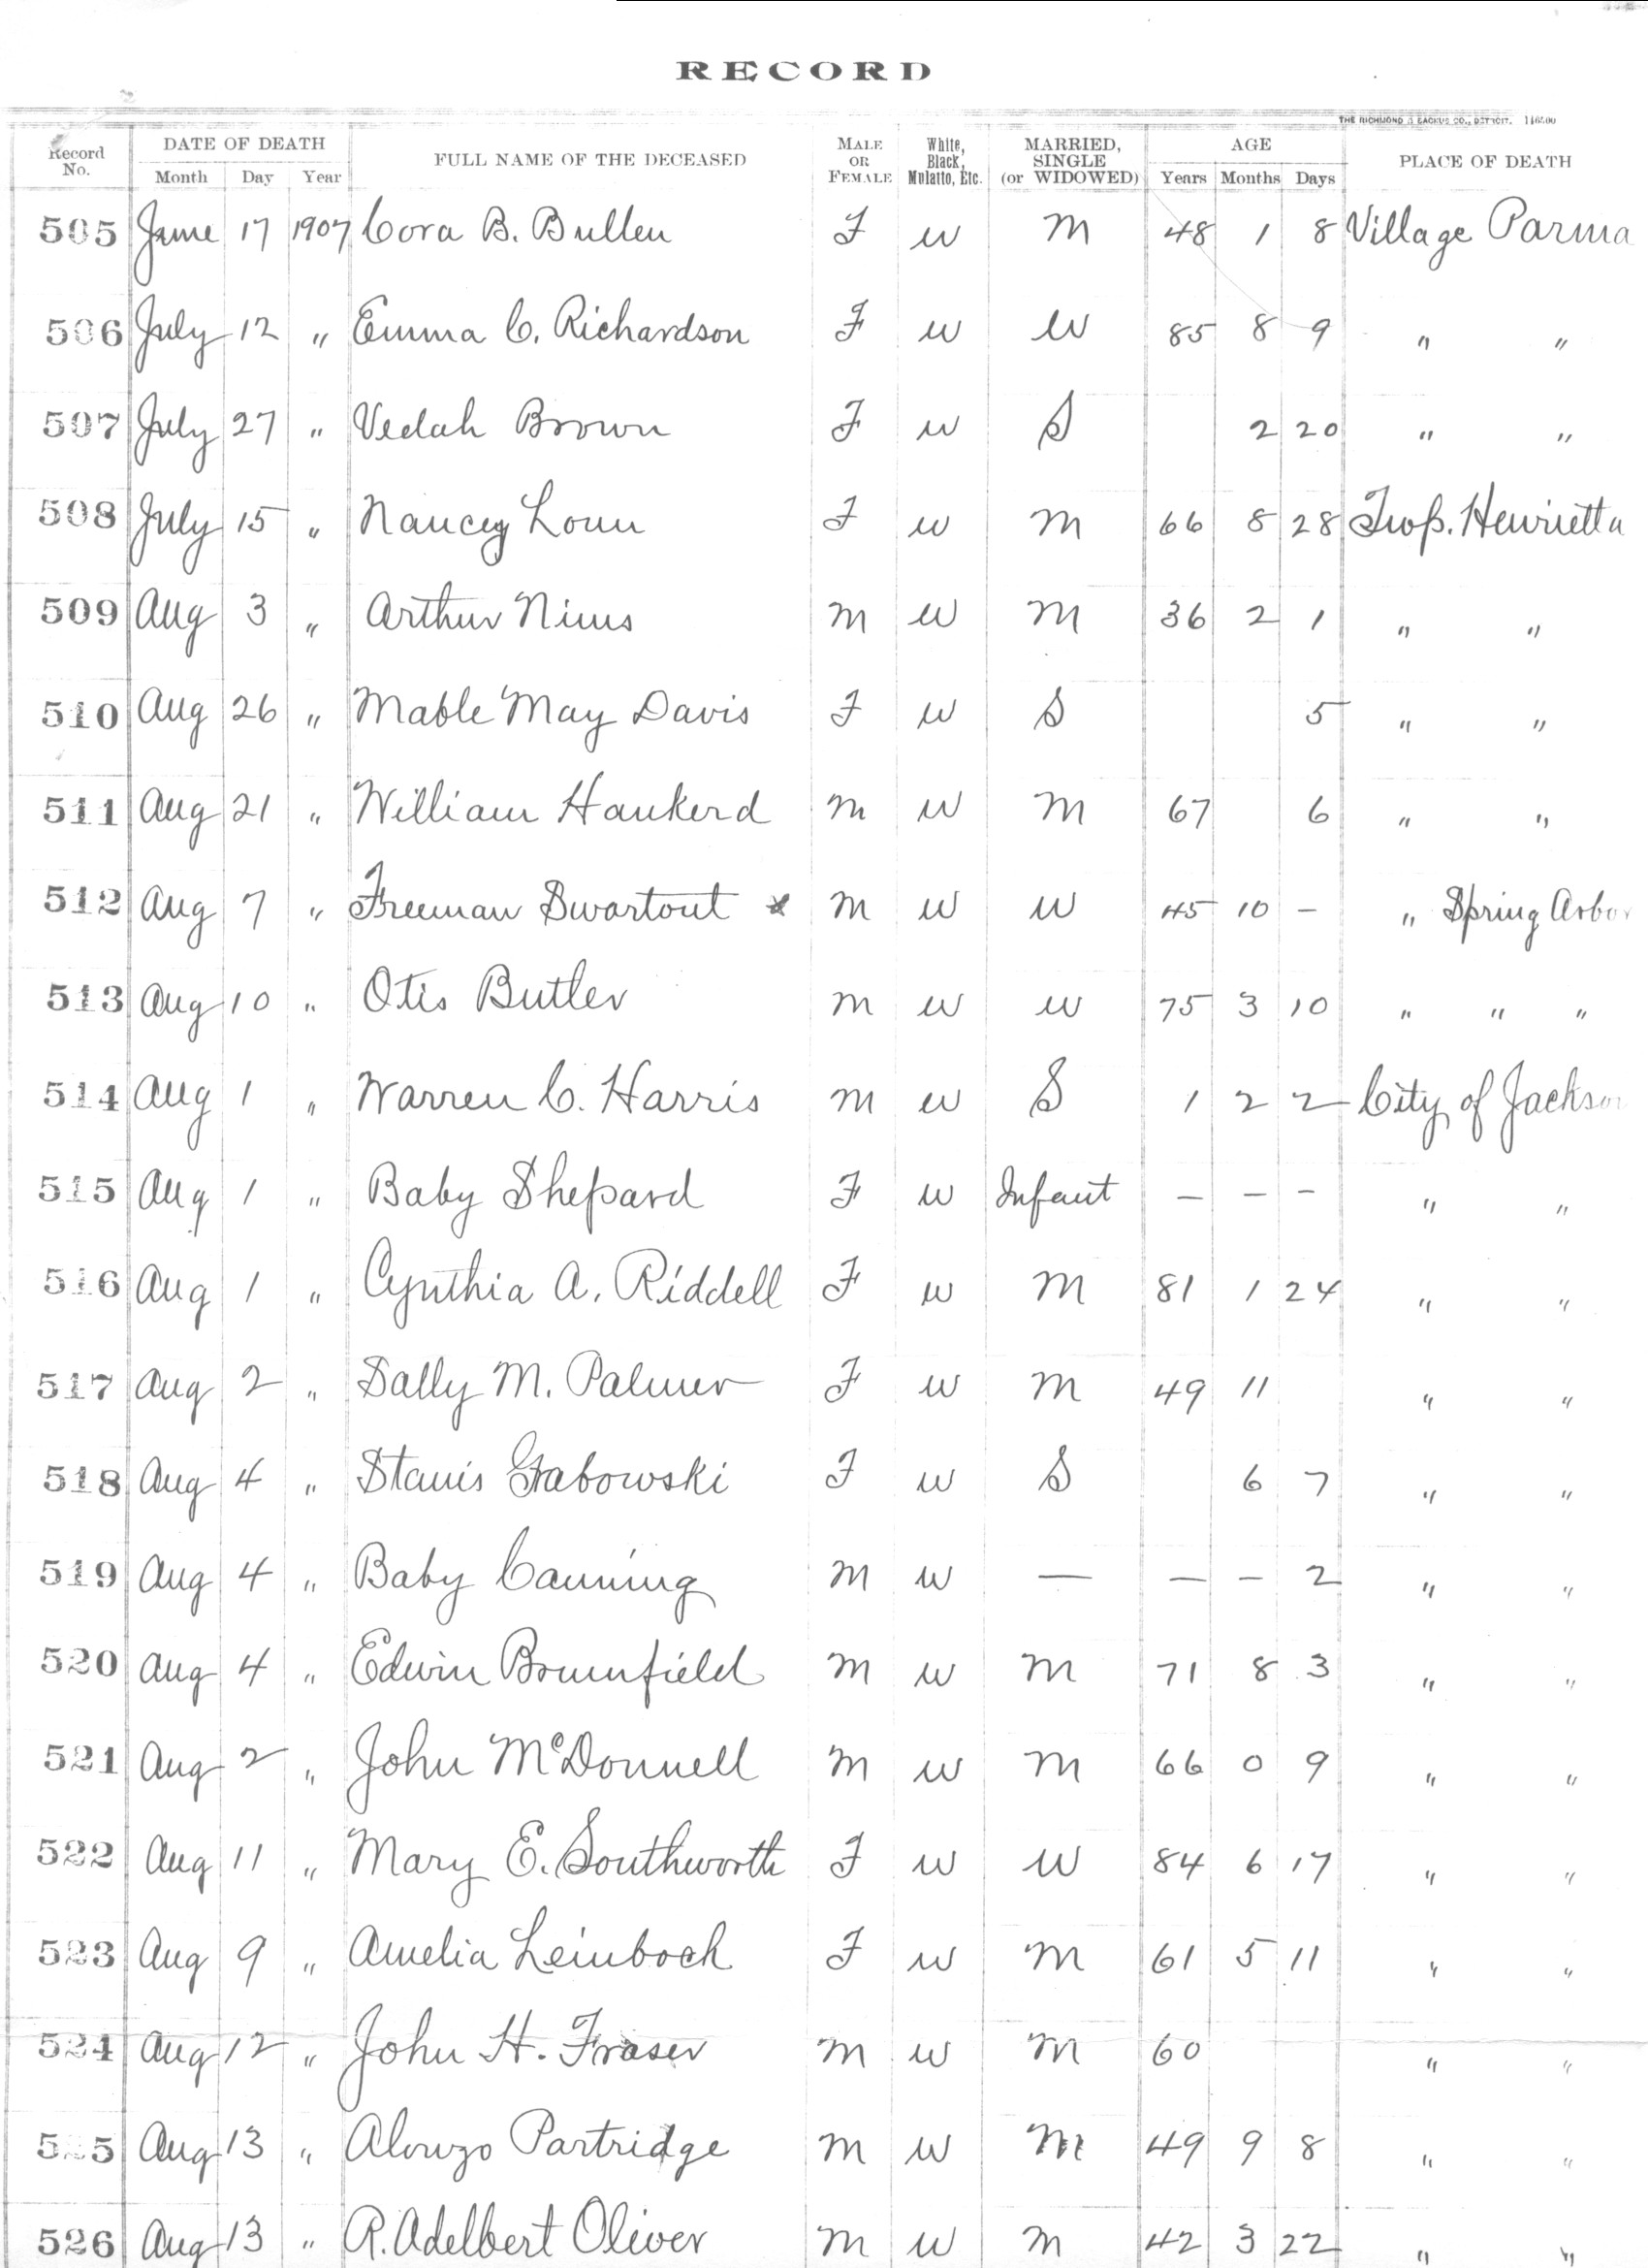 RECORD
THE RICHMOND & BACKUS CO., DETROIT. 116500
Record No. DATE OF DEATH Month Day Year FULL NAME OF THE DECEASED MALE OR FEMALE White, Black, Mulatto, Etc. MARRIED, SINGLE (or WIDOWED) AGE Years Months Days PLACE OF DEATH
505 June 17 1907 Cora B. Bullen F W M 48 1 8 Village Parma
506 July 12 " Emma C. Richardson F W W 85 8 9 " "
507 July 27 " Vedah Brown F W S 2 20 " "
508 July 15 " Nancy Loun F W M 66 8 28 Twp. Henrietta
509 Aug 3 " Arthur Nims M W M 36 2 1 " "
510 Aug 26 " Mable May Davis F W S 5 " "
511 Aug 21 " William Hankerd M W M 67 6 " "
512 Aug 7 " Freeman Swartout x M W W 45 10 - " Spring Arbor
513 Aug 10 " Otis Butler M W W 75 3 10 " " "
514 Aug 1 " Warren C. Harris M W S 1 2 2 City of Jackson
515 Aug 1 " Baby Shepard F W Infant - - - " "
516 Aug 1 " Cynthia A. Riddell F W M 81 1 24 " "
517 Aug 2 " Sally M. Palmer F W M 49 11 " "
518 Aug 4 " Stanis Grabowski F W S 6 7 " "
519 Aug 4 " Baby Canning M W — - - 2 " "
520 Aug 4 " Edwin Brumfield M W M 71 8 3 " "
521 Aug 2 " John McDonnell M W M 66 0 9 " "
522 Aug 11 " Mary E. Southworth F W W 84 6 17 " "
523 Aug 9 " Amelia Leinboch F W M 61 5 11 " "
524 Aug 12 " John H. Fraser M W M 60 " "
525 Aug 13 " Alonzo Partridge M W M 49 9 8 " "
526 Aug 13 " R. Adelbert Oliver M W M 42 3 22 " "